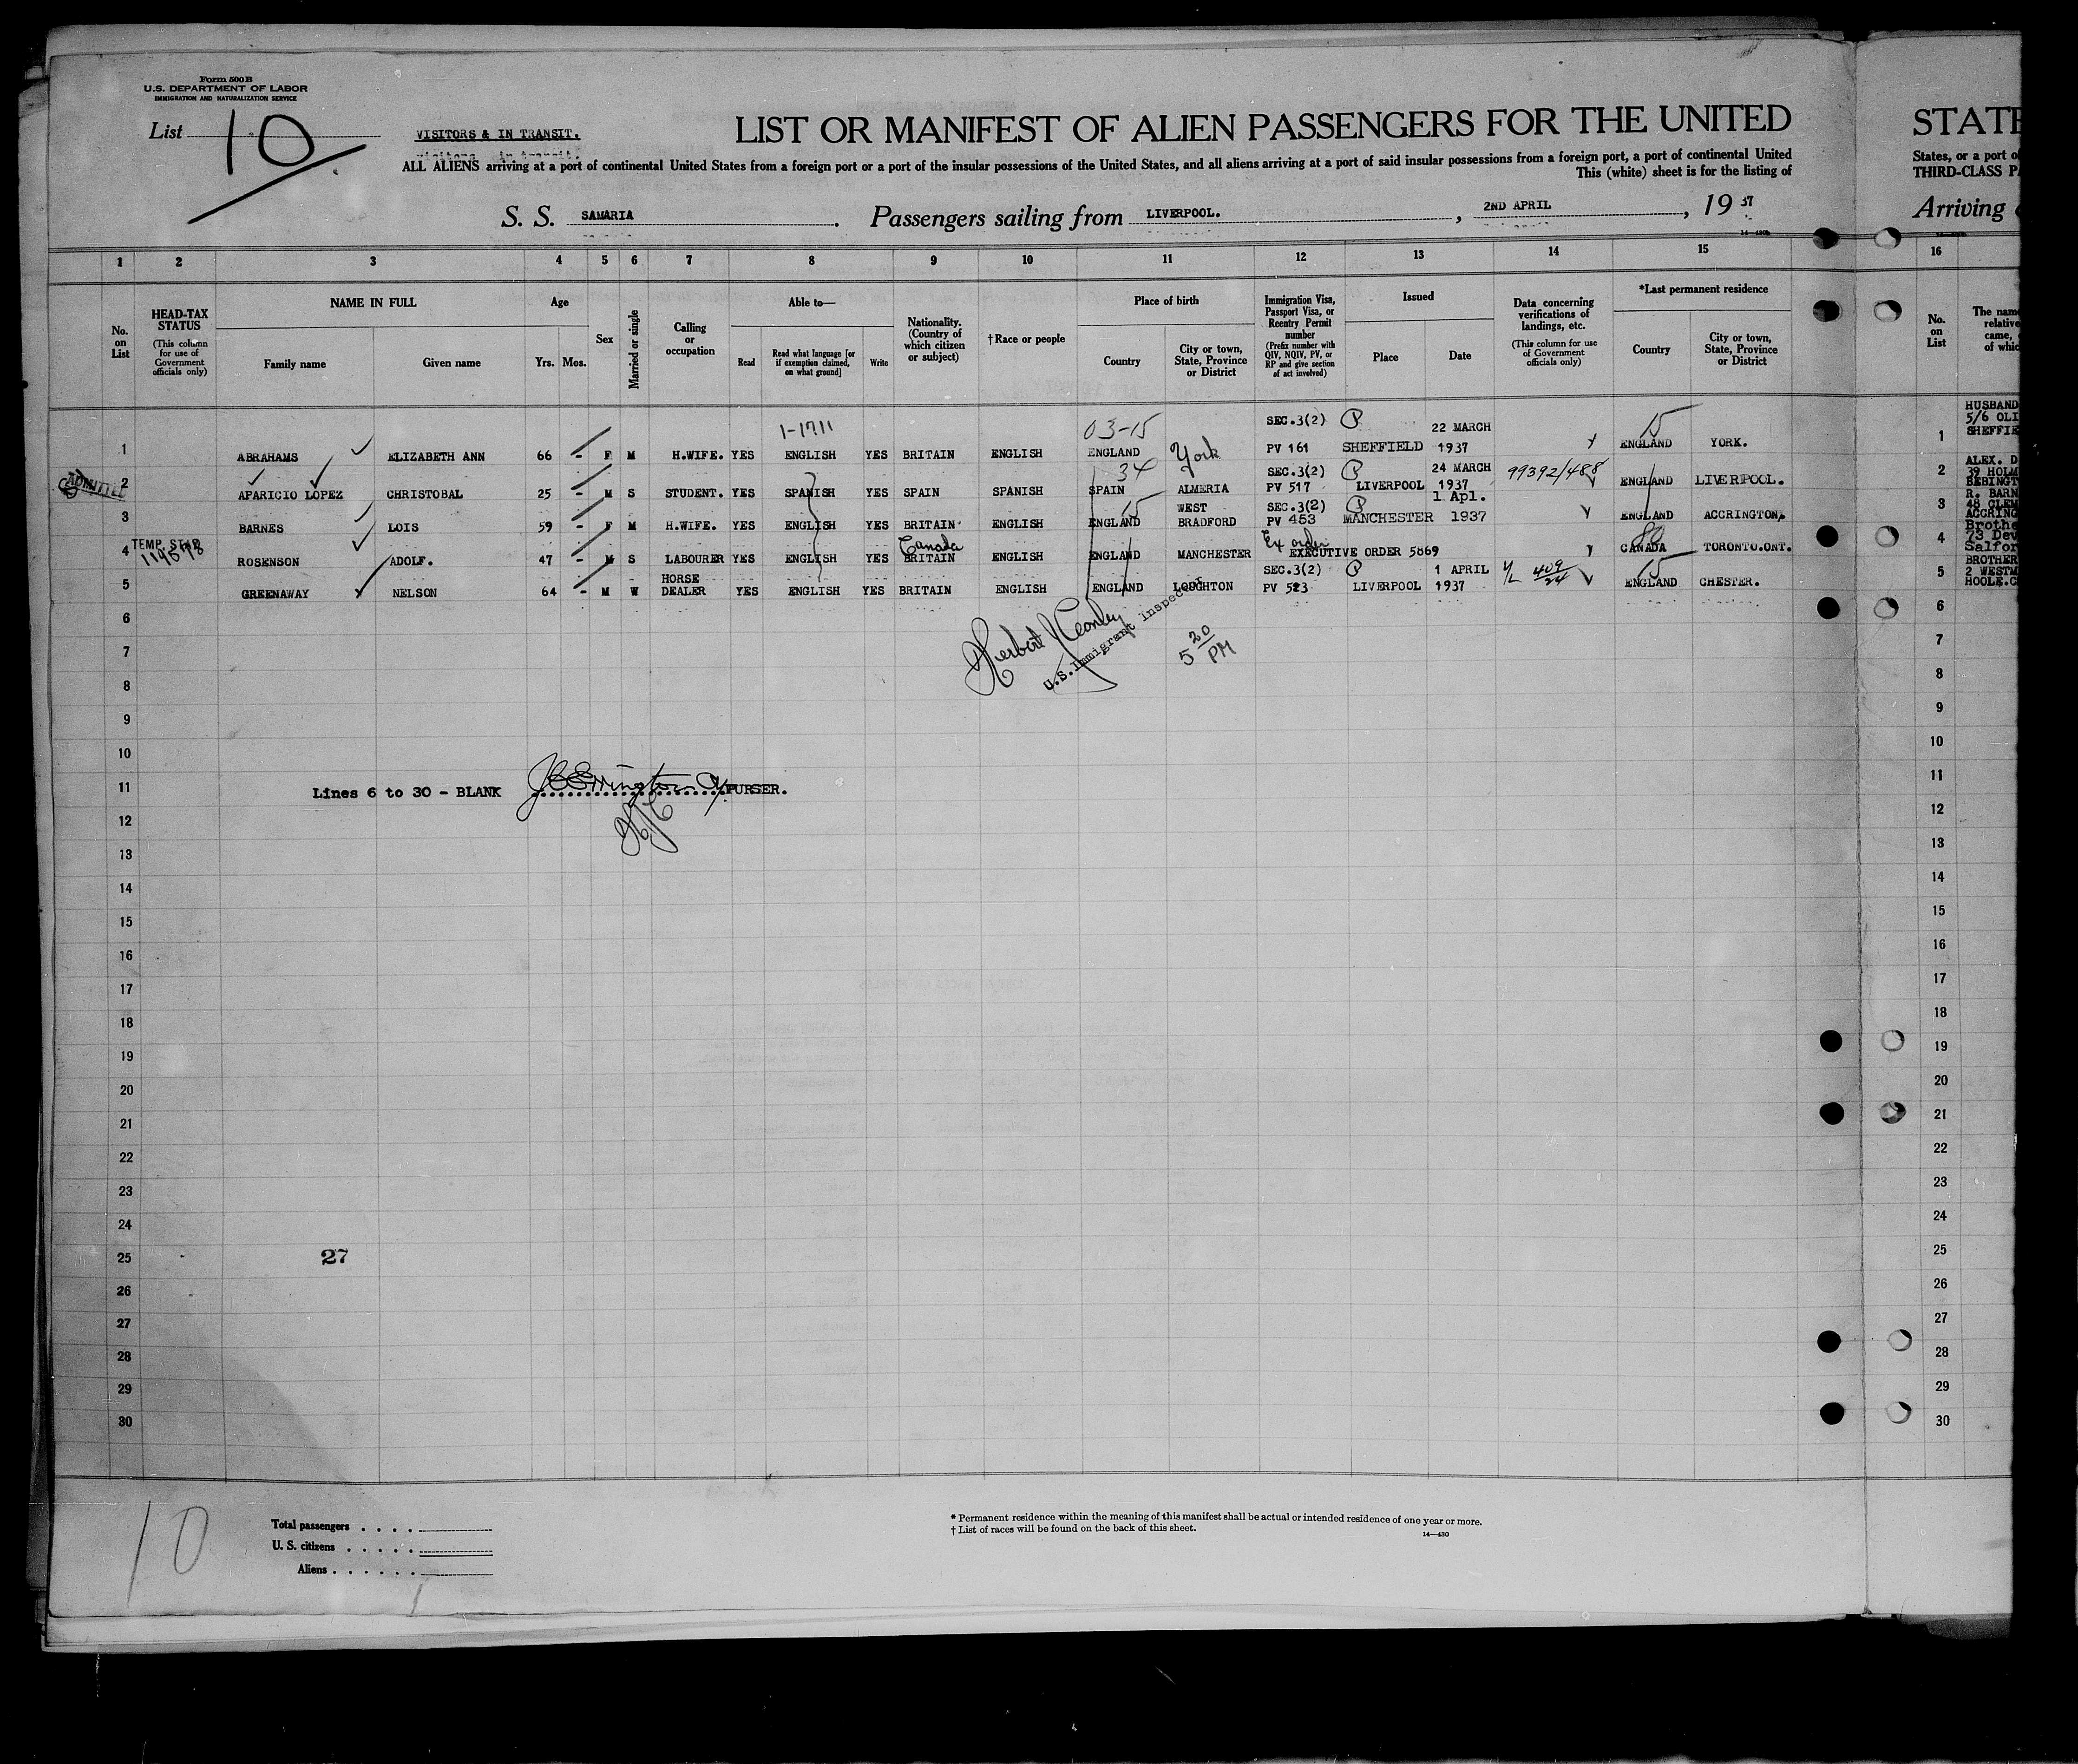 Form 500 B
U.S. DEPARTMENT OF LABOR
IMMIGRATION AND NATURALIZATION SERVICE
List 10
VISITORS & IN TRANSIT.
LIST OR MANIFEST OF ALIEN PASSENGERS FOR THE UNITED
STATE
ALL ALIENS arriving at a port of continental United States from a foreign port or a port of the insular possessions of the United States, and all aliens arriving at a port of said insular possessions from a foreign port, a port of continental United
States, or a port of
This (white) sheet is for the listing of
THIRD-CLASS PA
S. S. SAMARIA. Passengers sailing from LIVERPOOL., 2ND APRIL, 1937
Arriving
1 2 3 4 5 6 7 8 9 10 11 12 13 14 15 16
No. on List
HEAD-TAX STATUS
(This column for use of Government officials only)
NAME IN FULL
Family name
Given name
Age
Yrs. Mos.
Sex
Married or single
Calling or occupation
Able to—
Read
Read what language [or if exemption claimed, on what ground]
Write
Nationality. (Country of which citizen or subject)
† Race or people
Place of birth
Country
City or town, State, Province or District
Immigration Visa, Passport Visa, or Reentry Permit number
(Prefix number with QIV, NQIV, PV, or RP and give section of act involved)
Issued
Place
Date
Data concerning verifications of landings, etc.
(This column for use of Government officials only)
*Last permanent residence
Country
City or town, State, Province or District
No. on List
The name
relative
came,
of whic
1-1711 03-15 SEC.3(2) P 22 MARCH 15
1 ABRAHAMS ELIZABETH ANN 66 - F M H.WIFE. YES ENGLISH YES BRITAIN ENGLISH ENGLAND York PV 161 SHEFFIELD 1937 ENGLAND YORK.
1 HUSBAND
5/6 OLI
SHEFFIE
34 SEC.3(2) P 24 MARCH 99392/488
2 APARICIO LOPEZ CHRISTOBAL 25 - M S STUDENT. YES SPANISH YES SPAIN SPANISH SPAIN ALMERIA PV 517 LIVERPOOL 1937 ENGLAND LIVERPOOL.
2 ALEX. D
39 HOLM
BEBINGT
15 WEST SEC.3(2) P 1 Apl.
3 BARNES LOIS 59 - F M H.WIFE. YES ENGLISH YES BRITAIN ENGLISH ENGLAND BRADFORD PV 453 MANCHESTER 1937 ENGLAND ACCRINGTON,
3 R. BARN
48 CLEM
ACCRING
TEMP. Canada Ex order 80
4 ROSENSON ADOLF. 47 - M S LABOURER YES ENGLISH YES BRITAIN ENGLISH ENGLAND MANCHESTER EXECUTIVE ORDER 5869 CANADA TORONTO.ONT.
4 Brothe
73 Dev
Salfor
HORSE SEC.3(2) P 1 APRIL 409/24 15
5 GREENAWAY NELSON 64 - M W DEALER YES ENGLISH YES BRITAIN ENGLISH ENGLAND LOUGHTON PV 523 LIVERPOOL 1937 ENGLAND CHESTER.
5 BROTHER
2 WESTM
HOOLE.C
6 6
U.S. Immigrant Inspector
5 20 PM
7 7
8 8
9 9
10 10
11 Lines 6 to 30 - BLANK PURSER. 11
12 12
13 13
14 14
15 15
16 16
17 17
18 18
19 19
20 20
21 21
22 22
23 23
24 24
25 27 25
26 26
27 27
28 28
29 29
30 30
10
Total passengers
U. S. citizens
Aliens
* Permanent residence within the meaning of this manifest shall be actual or intended residence of one year or more.
† List of races will be found on the back of this sheet.
14—430